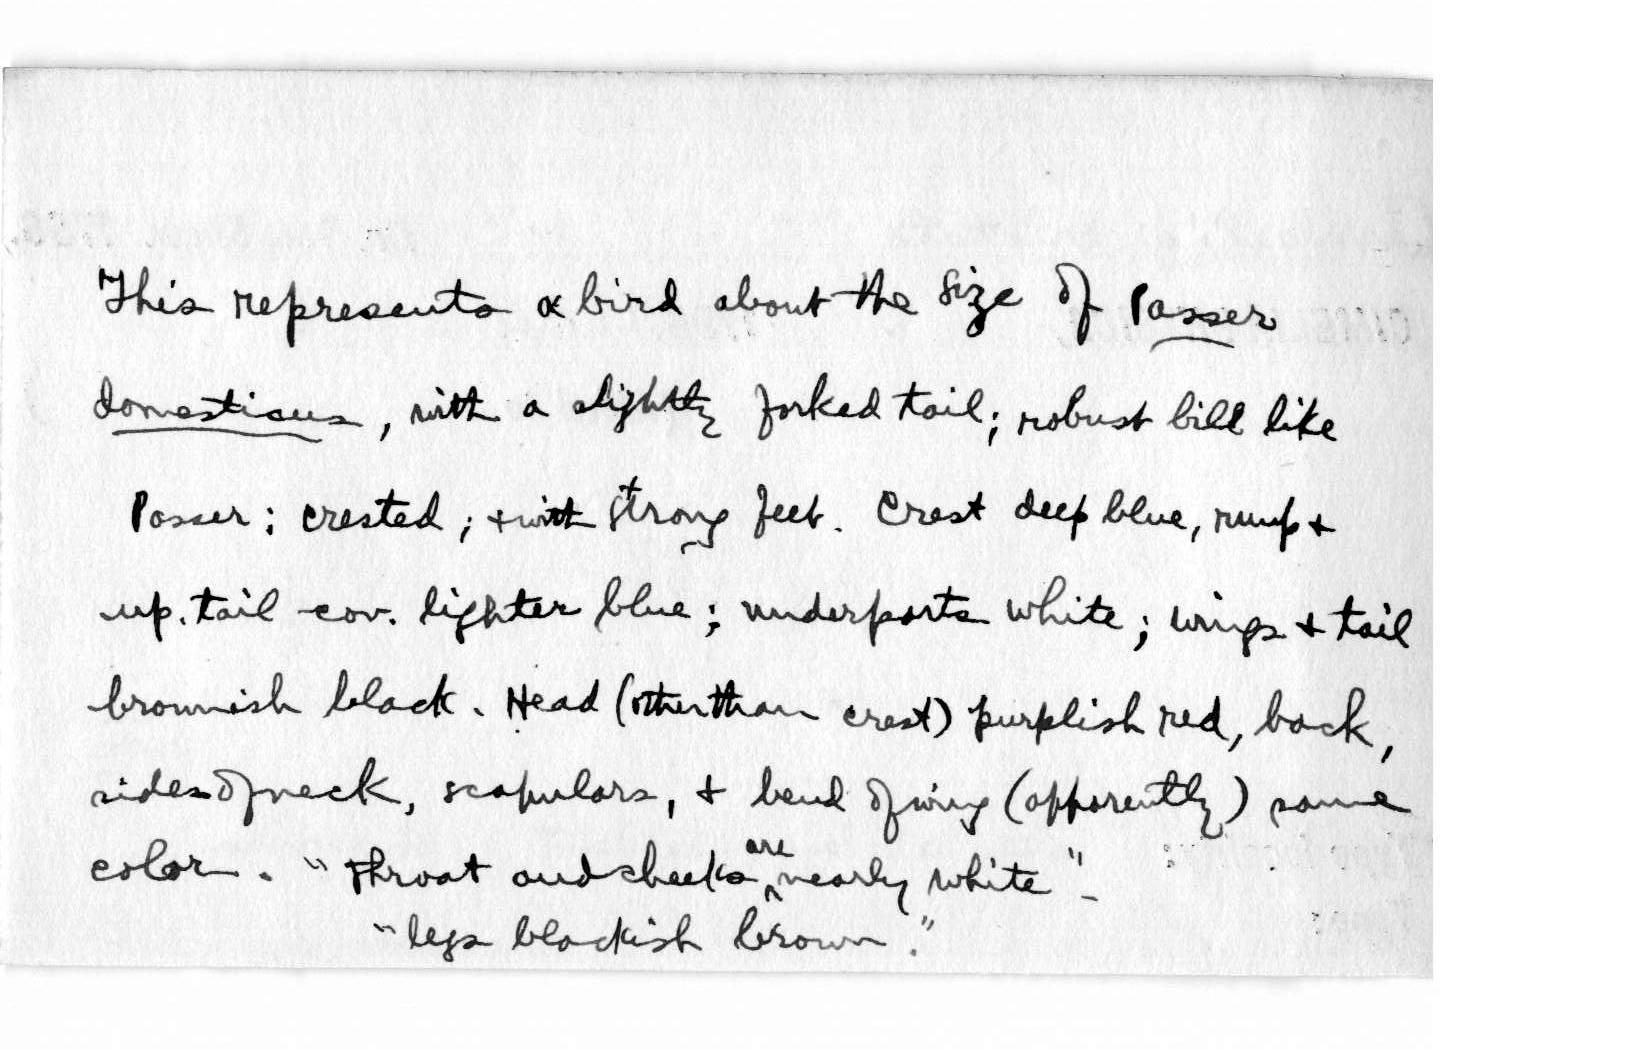 This represents a bird about the size of Passer
domesticus, with a slightly forked tail; robust bill like
Passer; crested; + with strong feet. Crest deep blue, rump +
up. tail-cov. lighter blue; underparts white; wings + tail
brownish black. Head (other than crest) purplish red, back,
sides of neck, scapulars, + bend of wing (apparently) same
color. "Throat and cheeks are nearly white" -
"legs blackish brown."